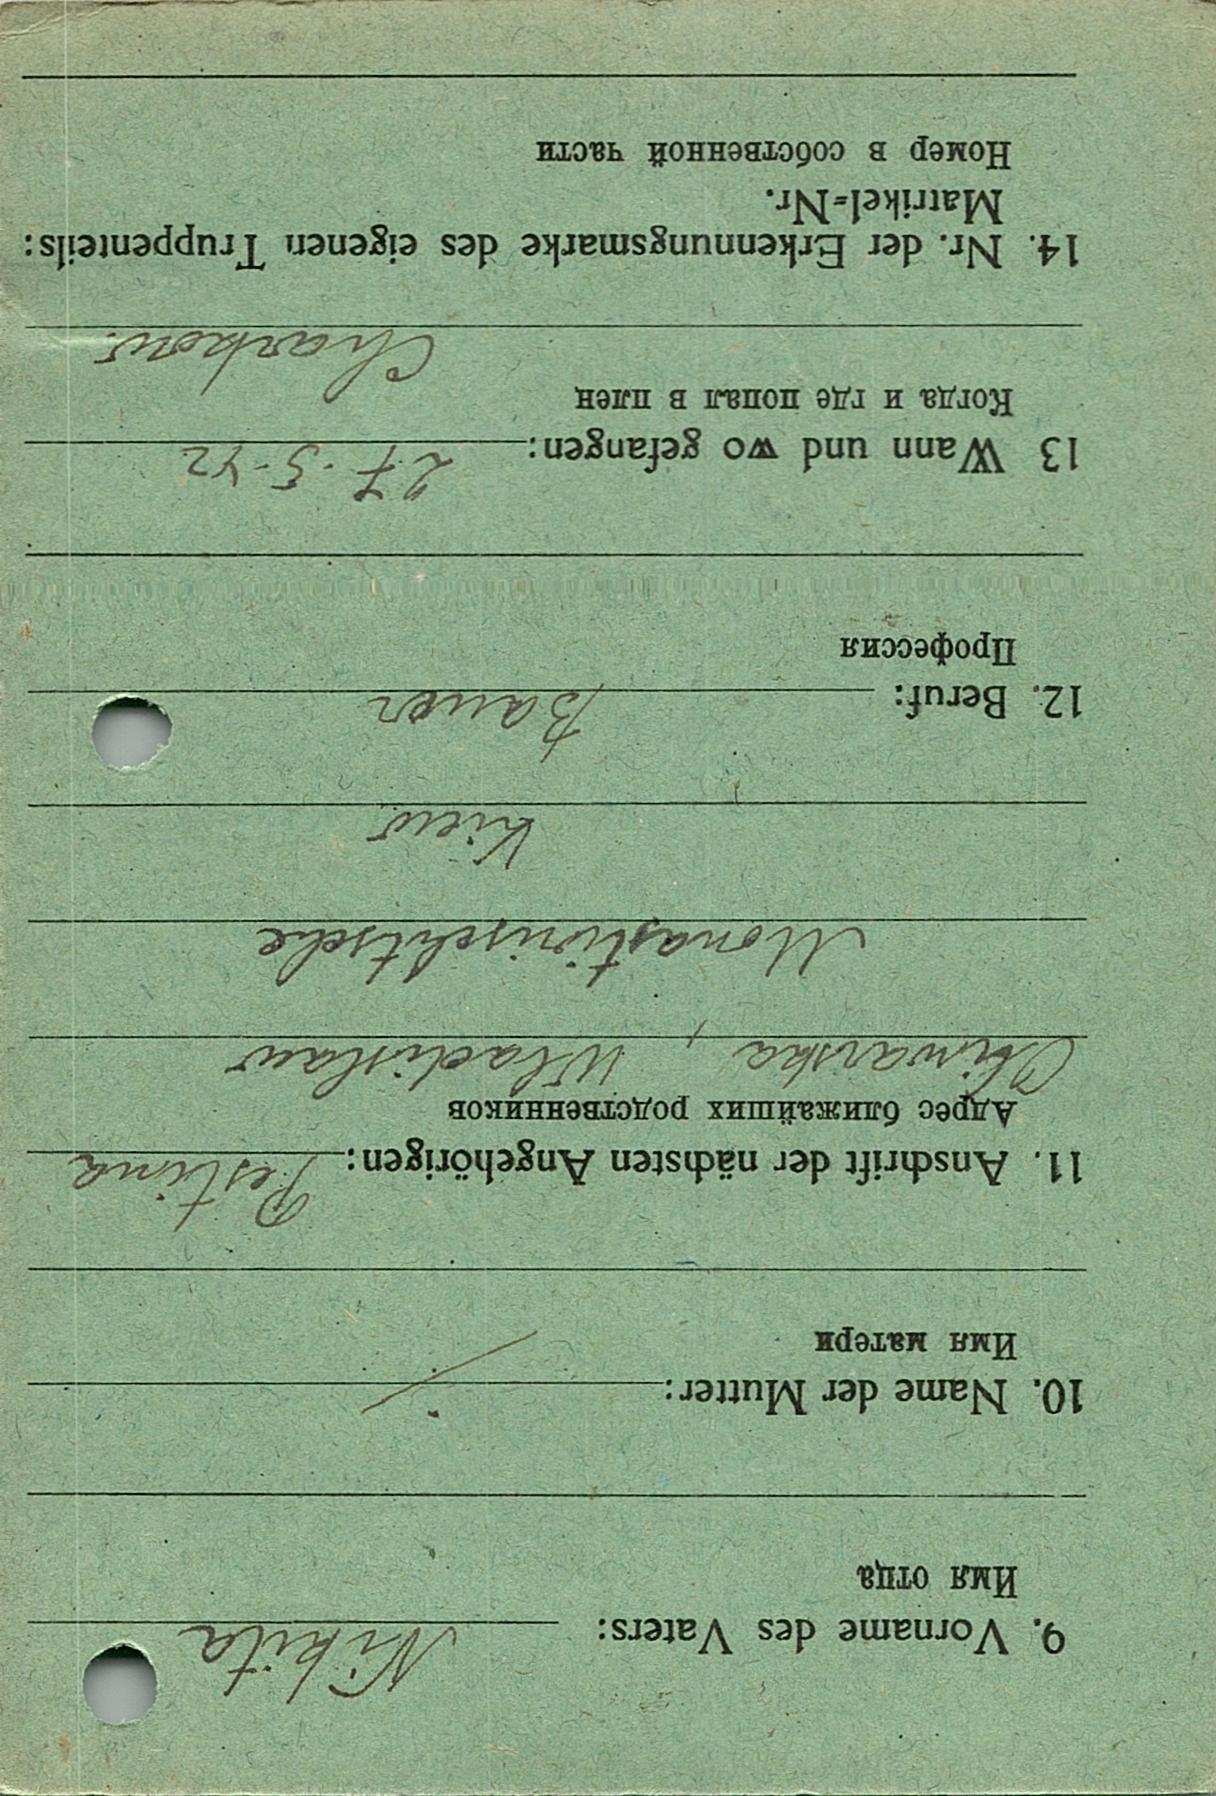 9. Vorname des Vaters: Nikita
Имя отца
10. Name der Mutter: /
Имя матери
11. Anschrift der nächsten Angehörigen: Pestina
Адрес ближайших родственников
Wladislaw
Monastirischtsche
Kiew
12. Beruf: Bauer
Профессия
13 Wann und wo gefangen: 27.5.42
Когда и где попал в плен
Charkow.
14. Nr. der Erkennungsmarke des eigenen Truppenteils:
Matrikel=Nr.
Номер в собственной части